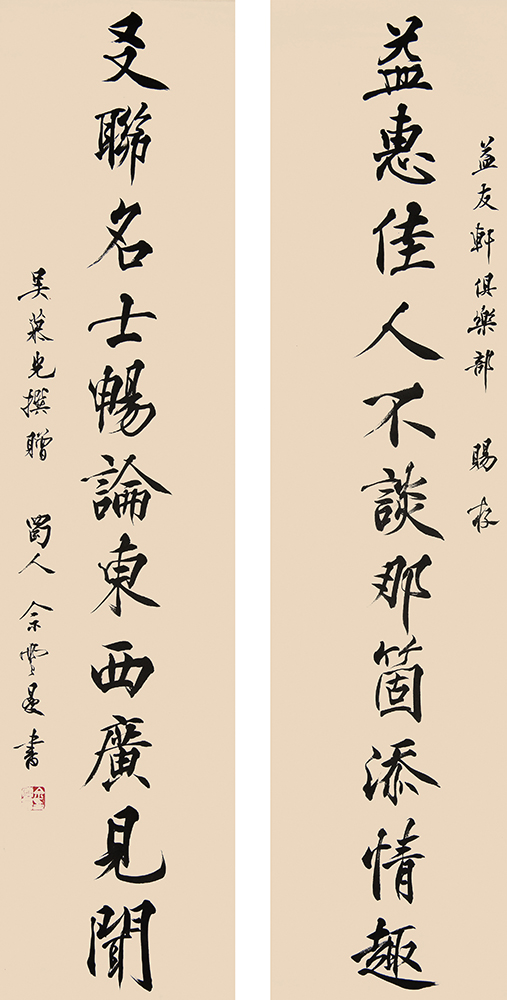 益友軒俱樂部 賜存
益惠佳人不談那箇添情趣
叐聯名士暢論東西廣見聞
吴慕光撰贈 蜀人 余 晟書